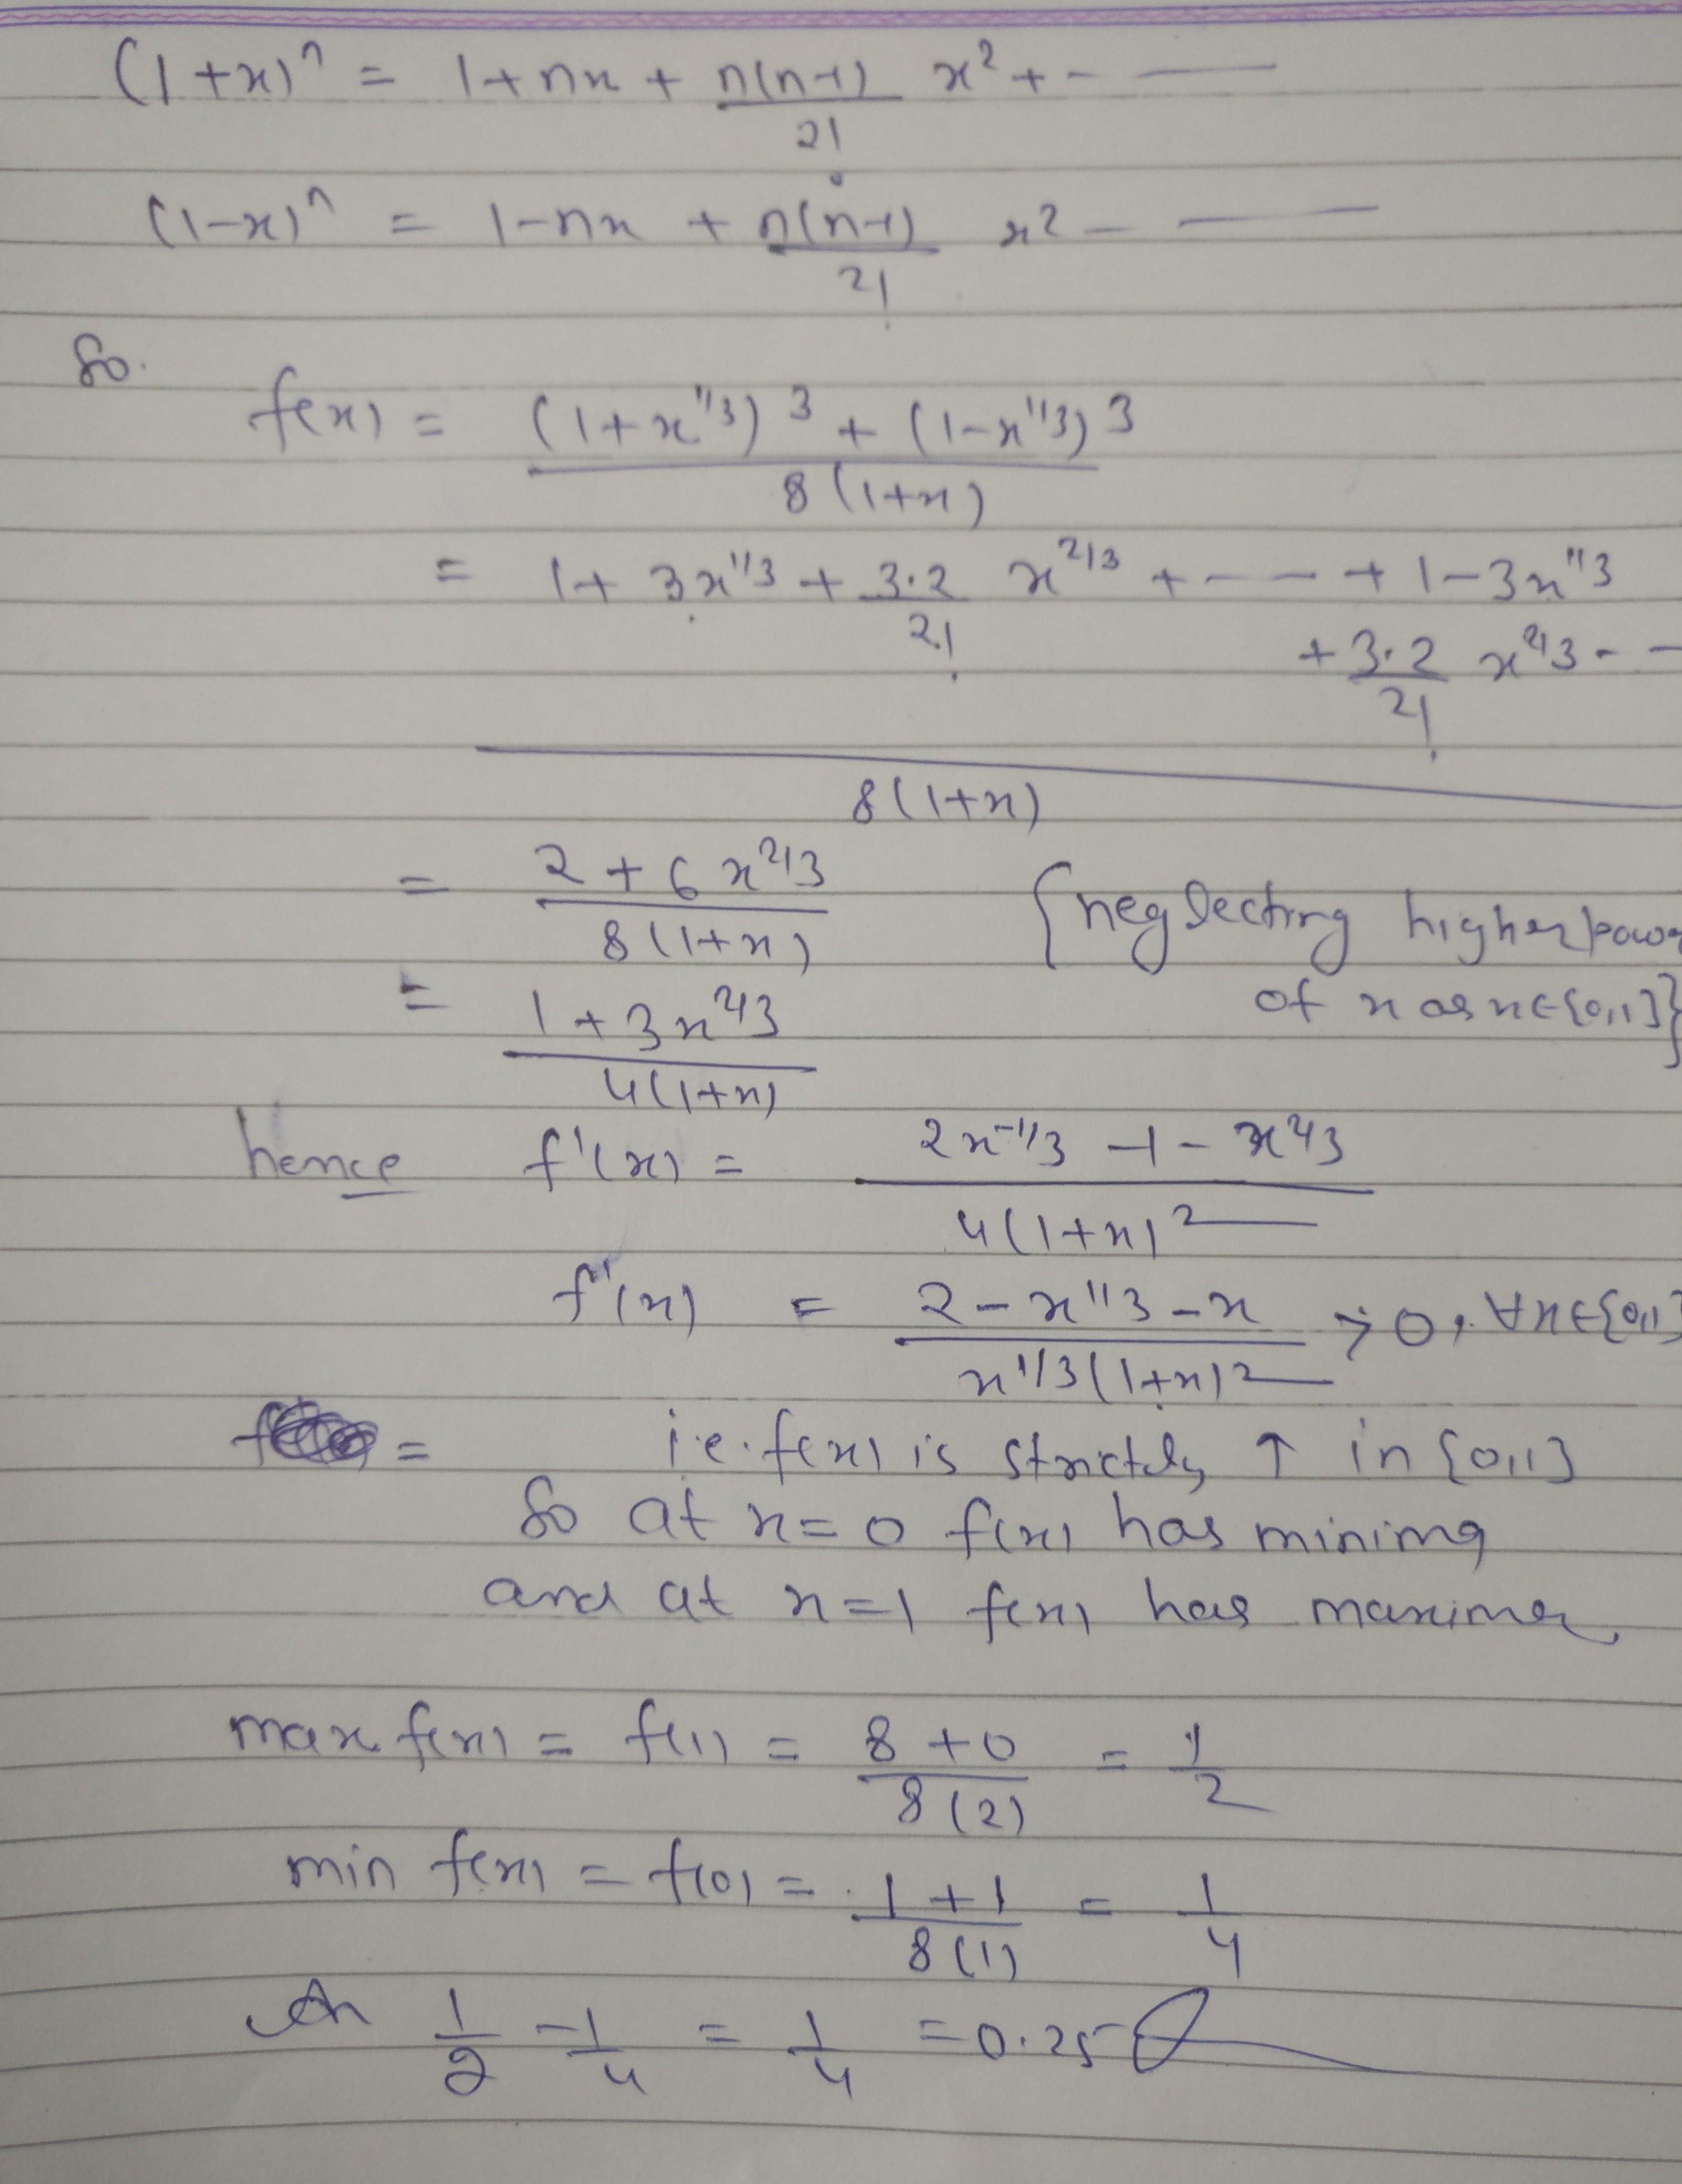 (1+x)^n = 1+nx + n(n-1)/2! x² + - —
(1-x)^n = 1-nx + n(n-1)/2! x² - —
So.
f(x) = ((1+x^1/3)^3 + (1-x^1/3)^3) / 8(1+x)
= 1+ 3x^1/3 + 3·2/2! x^2/3 + - — + 1-3x^1/3
+ 3·2/2! x^2/3 - -
8(1+x)
= (2 + 6x^2/3) / 8(1+x) {neglecting higher power
of x as x∈[0,1]}
= (1+3x^2/3) / 4(1+x)
hence f'(x) = (2x^-1/3 -1 - x^2/3) / 4(1+x)^2
f'(x) = (2 - x^1/3 - x) / x^1/3(1+x)^2 > 0, ∀x∈[0,1]
= i.e. f(x) is strictly ↑ in [0,1]
So at x=0 f(x) has minima
and at x=1 f(x) has maxima
max f(x) = f(1) = (8+0)/8(2) = 1/2
min f(x) = f(0) = (1+1)/8(1) = 1/4
1/2 - 1/4 = 1/4 = 0.25